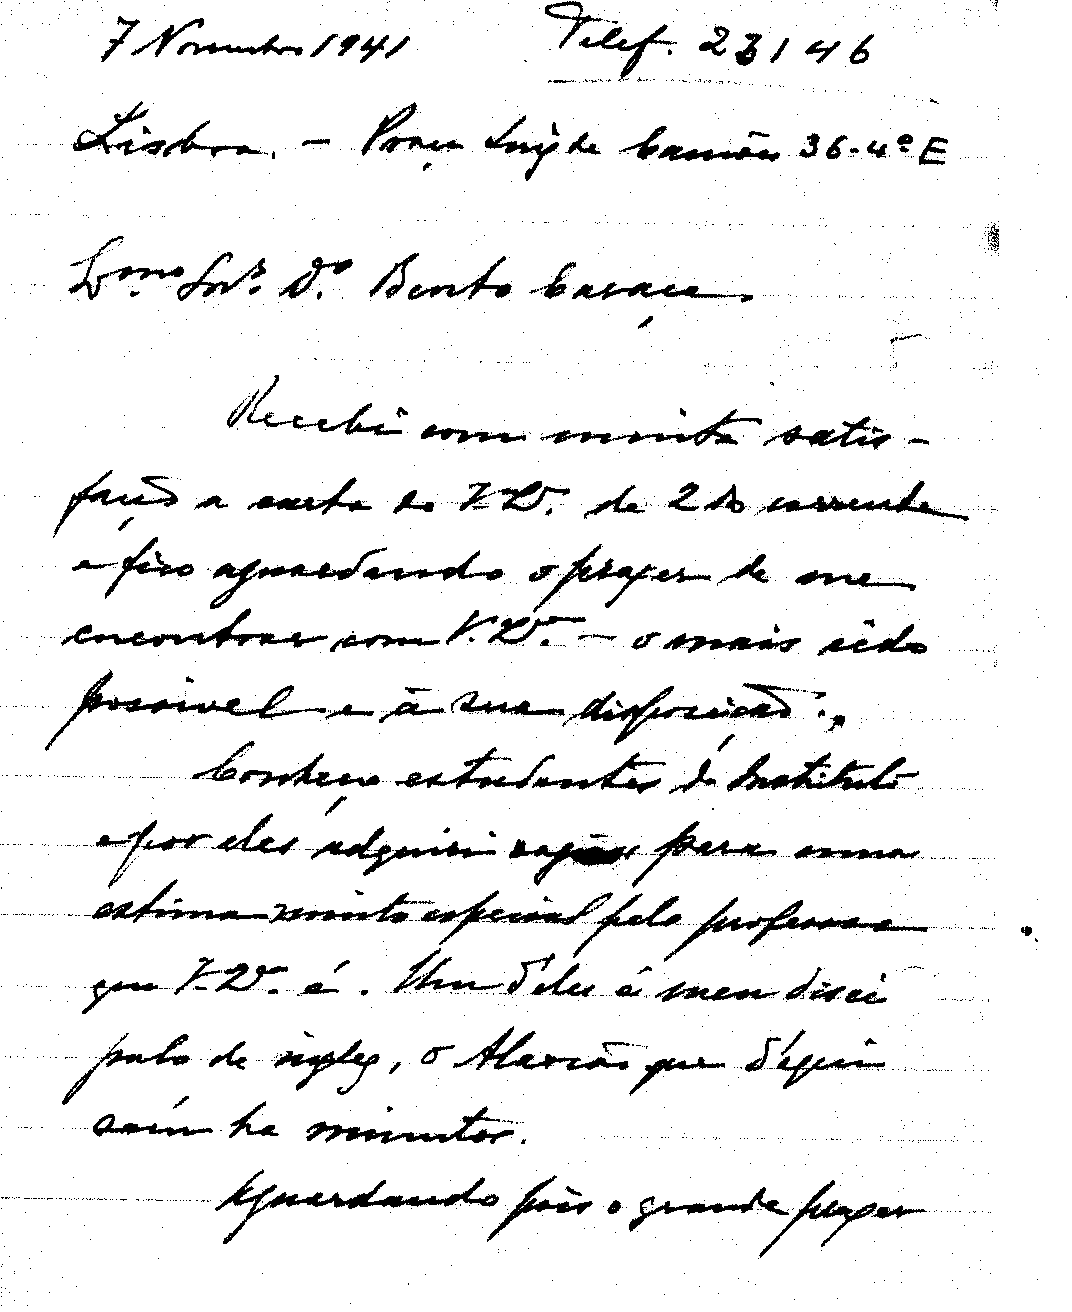 7 Novembro 1941 Telef. 23146
Lisboa. — Praça Luiz de Camões 36-4º E
Exmo. Snr. Dr. Bento Caraça.
Recebi com muita satis-
fação a carta de V. Exª. de 2 do corrente
e fico aguardando o prazer de me
encontrar com V. Exª. — o mais cêdo
possivel e à sua disposição.
Conheço estudantes do Instituto
e por eles adquiri razões para uma
estima muito especial pelo professor
que V. Exª. é. Um dêles é meu disci
pulo de inglez, o Alarcão que d'aqui
saíu ha minutos.
Aguardando pois o grande prazer